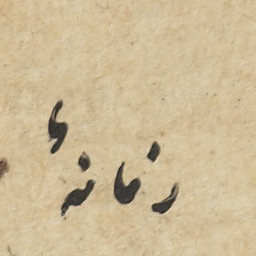 زمانهٔ